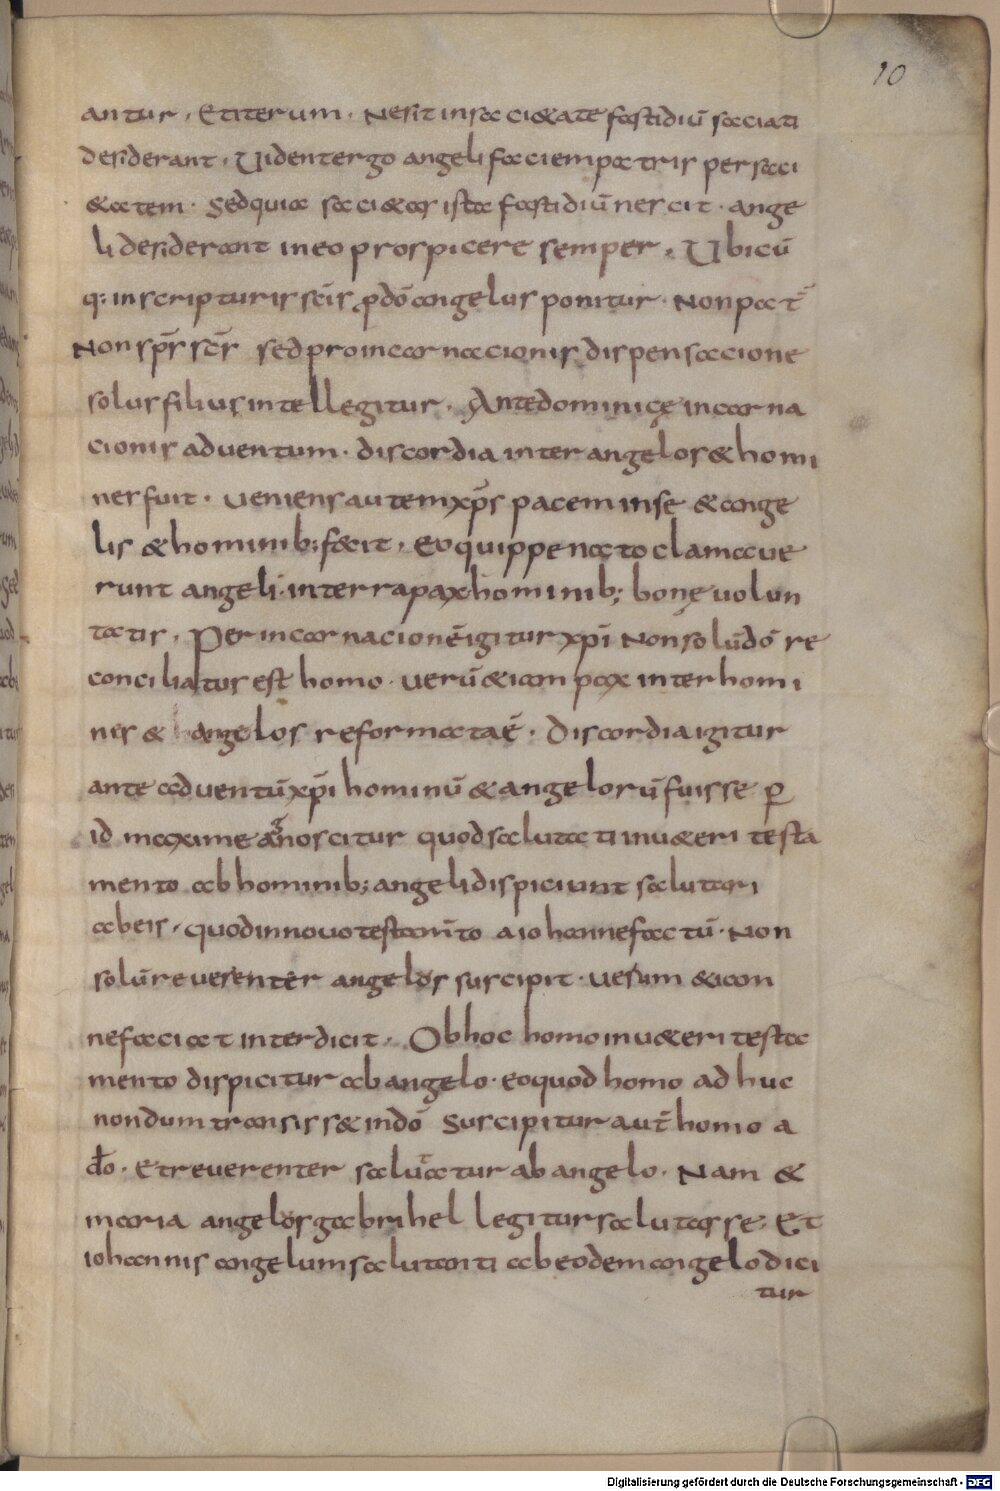 10
antur. Et iterum. Ne sit in saci&ate fastidiū saciati
desiderant. Vident ergo angeli faciem patris per saci
&atem. Sed quia saci&as ista fastidiū nescit. ange
li desiderant in eo prospicere semper. Vbicū
q; in scripturis sc̄is p̱ dō angelus ponitur. Non pat̄
Non sp̄s sc̄s sed pro incarnacionis dispensacione
solus filius intellegitur. Ante dominicę incarna
cionis adventum. discordia inter angelos & homi
nes fuit. veniens autem xp̄s pacem in se & ange
lis & hominib; fecit. Eo quippe nato clamave
runt angeli. in terra pax hominib; bonę volun
tatis. Per incarnacionē igitur xp̄i Non solū dō re
conciliatus est homo. verū &iam pax inter homi
nis & angelos reformata ē. Discordia igitur
ante adventū xp̄i hominū & angelorū fuisse p̱
id maxime agnoscitur quod salutati in v&eri testa
mento ab hominib; angeli dispiciunt salutari
ab eis. quod in novo testamīto a iohanne factū. Non
solū reverenter angelos suscipit. verum &iam
ne faciat interdicit. Ob hoc homo in v&eri testa
mento dispicitur ab angelo. eo quod homo ad huc
nondum transiss& in dō Suscipitur aut̄ homo a
d̄o. Et reverenter salutatur ab angelo. Nam &
maria angelos gabrihel legitur salutasse. Et
iohannis angelum salutanti ab eodem angelo dici
tur
Digitalisierung gefördert durch die Deutsche Forschungsgemeinschaft - DFG